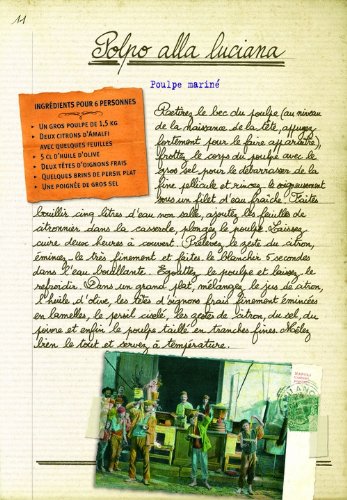 11
Polpo alla luciana
Poulpe mariné
INGRÉDIENTS POUR 6 PERSONNES
• UN GROS POULPE DE 1,5 KG
• DEUX CITRONS D'AMALFI
AVEC QUELQUES FEUILLES
• 5 CL D'HUILE D'OLIVE
• DEUX TÊTES D'OIGNONS FRAIS
• QUELQUES BRINS DE PERSIL PLAT
• UNE POIGNÉE DE GROS SEL
Retirez le bec du poulpe (au niveau
de la naissance de la tête, appuyez
fortement pour le faire apparaître),
frottez le corps du poulpe avec le
gros sel pour le débarrasser de la
fine pellicule et rincez-le soigneusement
sous un filet d'eau fraîche. Faites
bouillir cinq litres d'eau non salée, ajoutez les feuilles de
citronnier dans la casserole, plongez le poulpe. Laissez
cuire deux heures à couvert. Prélevez le zeste du citron,
émincez-le très finement et faites-le blanchir 5 secondes
dans l'eau bouillante. Egouttez le poulpe et laissez-le
refroidir. Dans un grand plat, mélangez le jus de citron,
l'huile d'olive, les têtes d'oignons frais finement émincées
en lamelles, le persil ciselé, les zestes de citron, du sel, du
poivre et enfin le poulpe taillé en tranches fines. Mêlez
bien le tout et servez à température.